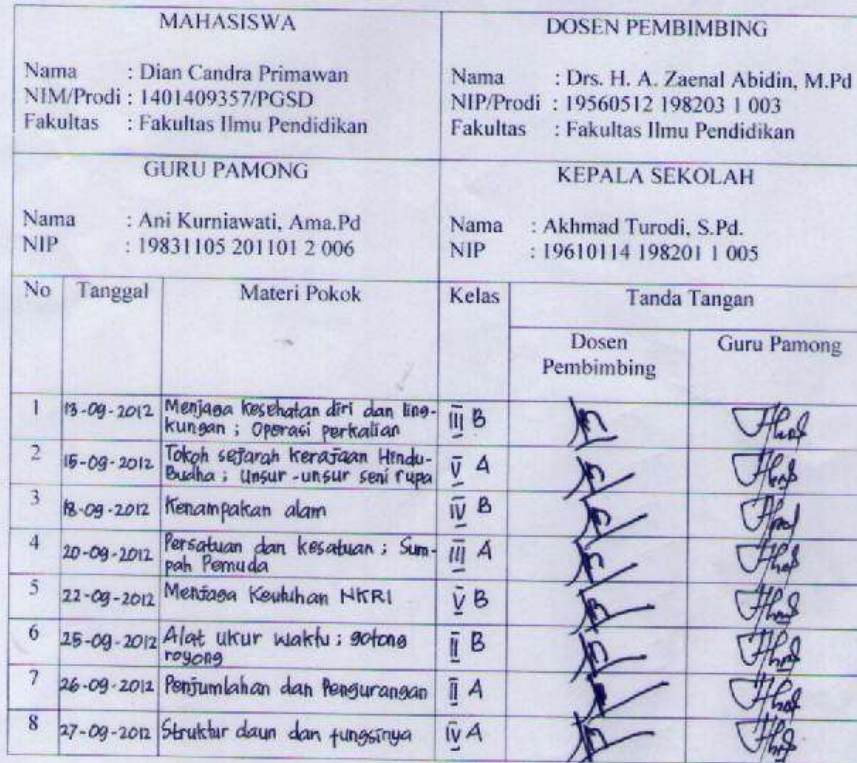 MAHASISWA
Nama : Dian Candra Primawan
NIM/Prodi : 1401409357/PGSD
Fakultas : Fakultas Ilmu Pendidikan
DOSEN PEMBIMBING
Nama : Drs. H. A. Zaenal Abidin, M.Pd
NIP/Prodi : 19560512 198203 1 003
Fakultas : Fakultas Ilmu Pendidikan
GURU PAMONG
Nama : Ani Kurniawati, Ama.Pd
NIP : 19831105 201101 2 006
KEPALA SEKOLAH
Nama : Akhmad Turodi, S.Pd.
NIP : 19610114 198201 1 005
No Tanggal Materi Pokok Kelas Tanda Tangan
Dosen Pembimbing Guru Pamong
1 13-09-2012 Menjaga kesehatan diri dan ling-
kungan ; Operasi perkalian III B
2 15-09-2012 Tokoh sejarah kerajaan Hindu-
Budha ; Unsur-unsur seni rupa V A
3 18-09-2012 Kenampakan alam IV B
4 20-09-2012 Persatuan dan kesatuan ; Sum-
pah Pemuda III A
5 22-09-2012 Menjaga Keutuhan NKRI V B
6 25-09-2012 Alat ukur waktu ; gotong
royong II B
7 26-09-2012 Penjumlahan dan Pengurangan II A
8 27-09-2012 Struktur daun dan fungsinya IV A